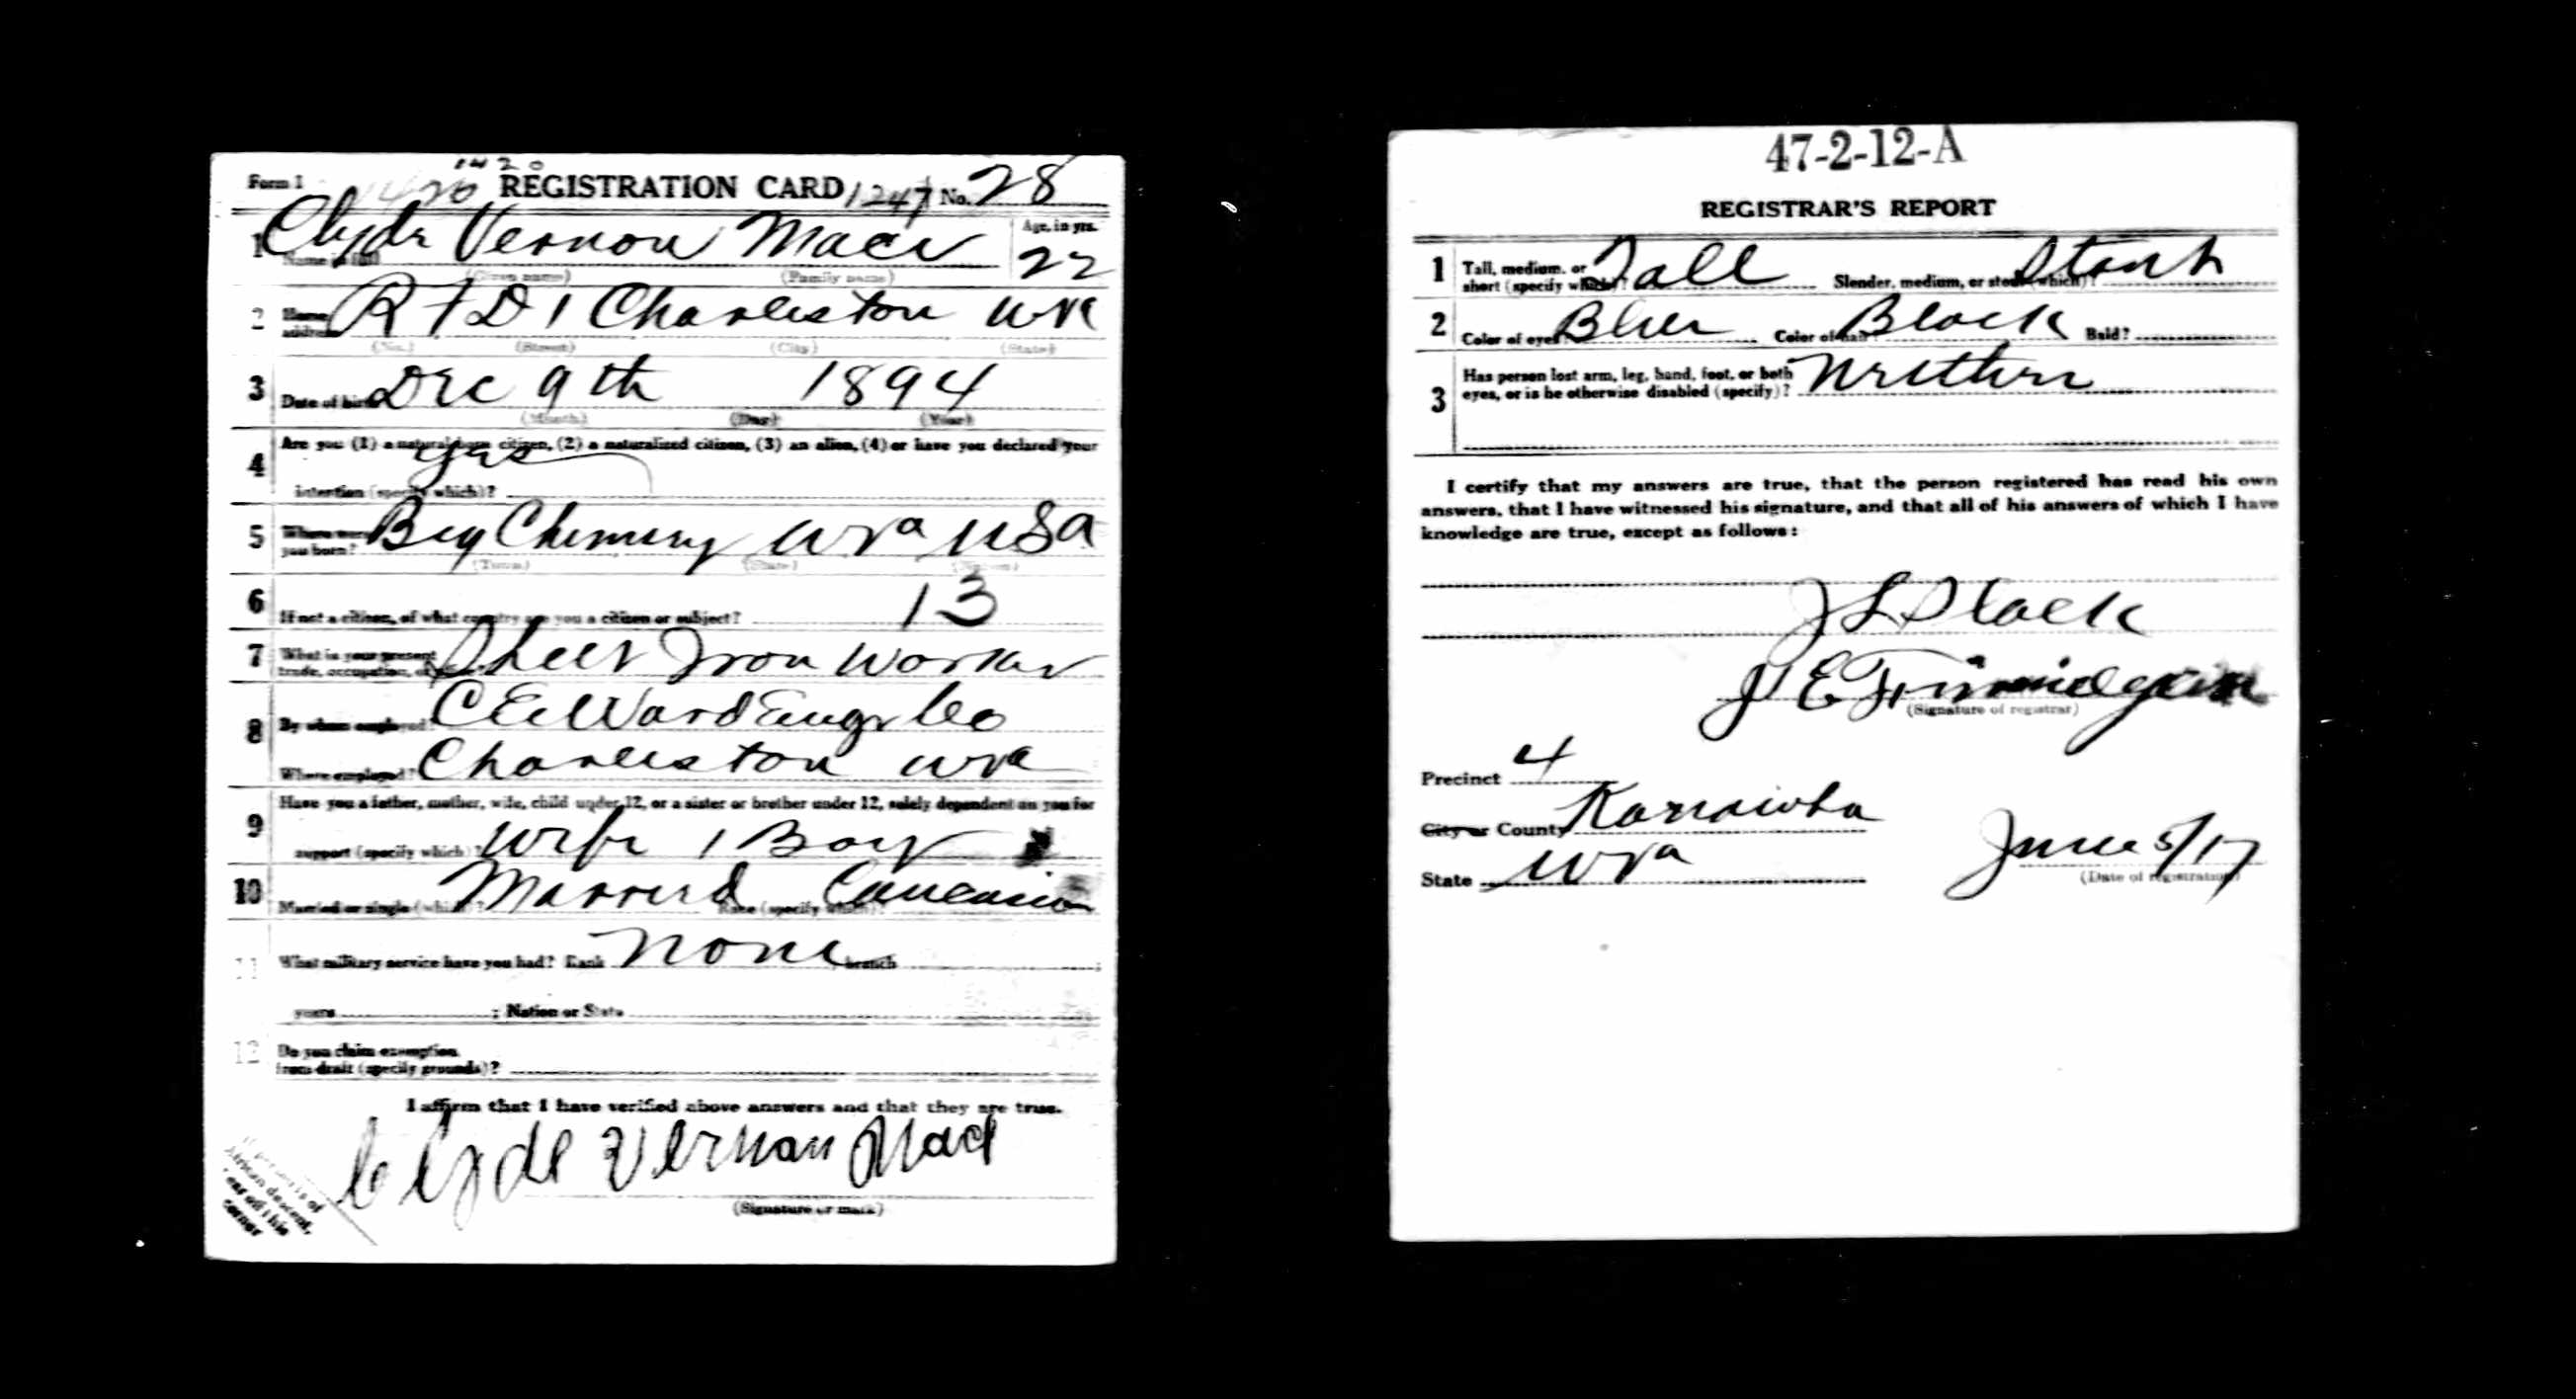 1420
Form 1 1420 REGISTRATION CARD 1247 No. 28
1 Name in full Clyde Vernon Mace Age, in yrs. 22
(Given name) (Family name)
2 Home address R F D 1 Charleston WVa
(No.) (Street) (City) (State)
3 Date of birth Dec 9th 1894
(Month) (Day) (Year)
4 Are you (1) a natural-born citizen, (2) a naturalized citizen, (3) an alien, (4) or have you declared your
intention (specify which)? yes
5 Where were you born? Big Chimney WVa USA
(Town) (State) (Nation)
6 If not a citizen, of what country are you a citizen or subject? 13
7 What is your present trade, occupation, or office? Sheet Iron Worker
8 By whom employed? C E Ward Engr Co
Where employed? Charleston WVa
9 Have you a father, mother, wife, child under 12, or a sister or brother under 12, solely dependent on you for
support (specify which)? Wife 1 Boy
10 Married or single (which)? Married Race (specify which)? Caucasian
11 What military service have you had? Rank None branch
years ; Nation or State
12 Do you claim exemption
from draft (specify grounds)?
I affirm that I have verified above answers and that they are true.
Clyde Vernan Mace
(Signature or mark)
of
African descent,
tear off this
corner
47-2-12-A
REGISTRAR'S REPORT
1 Tall, medium, or short (specify which)? Tall Slender, medium, or stout (which)? Stout
2 Color of eyes? Blue Color of hair? Black Bald?
3 Has person lost arm, leg, hand, foot, or both
eyes, or is he otherwise disabled (specify)? Neither
I certify that my answers are true, that the person registered has read his own
answers, that I have witnessed his signature, and that all of his answers of which I have
knowledge are true, except as follows:
J L Slack
J E
(Signature of registrar)
Precinct 4
City or County Kanawha
State WVa June 5/17
(Date of registration)